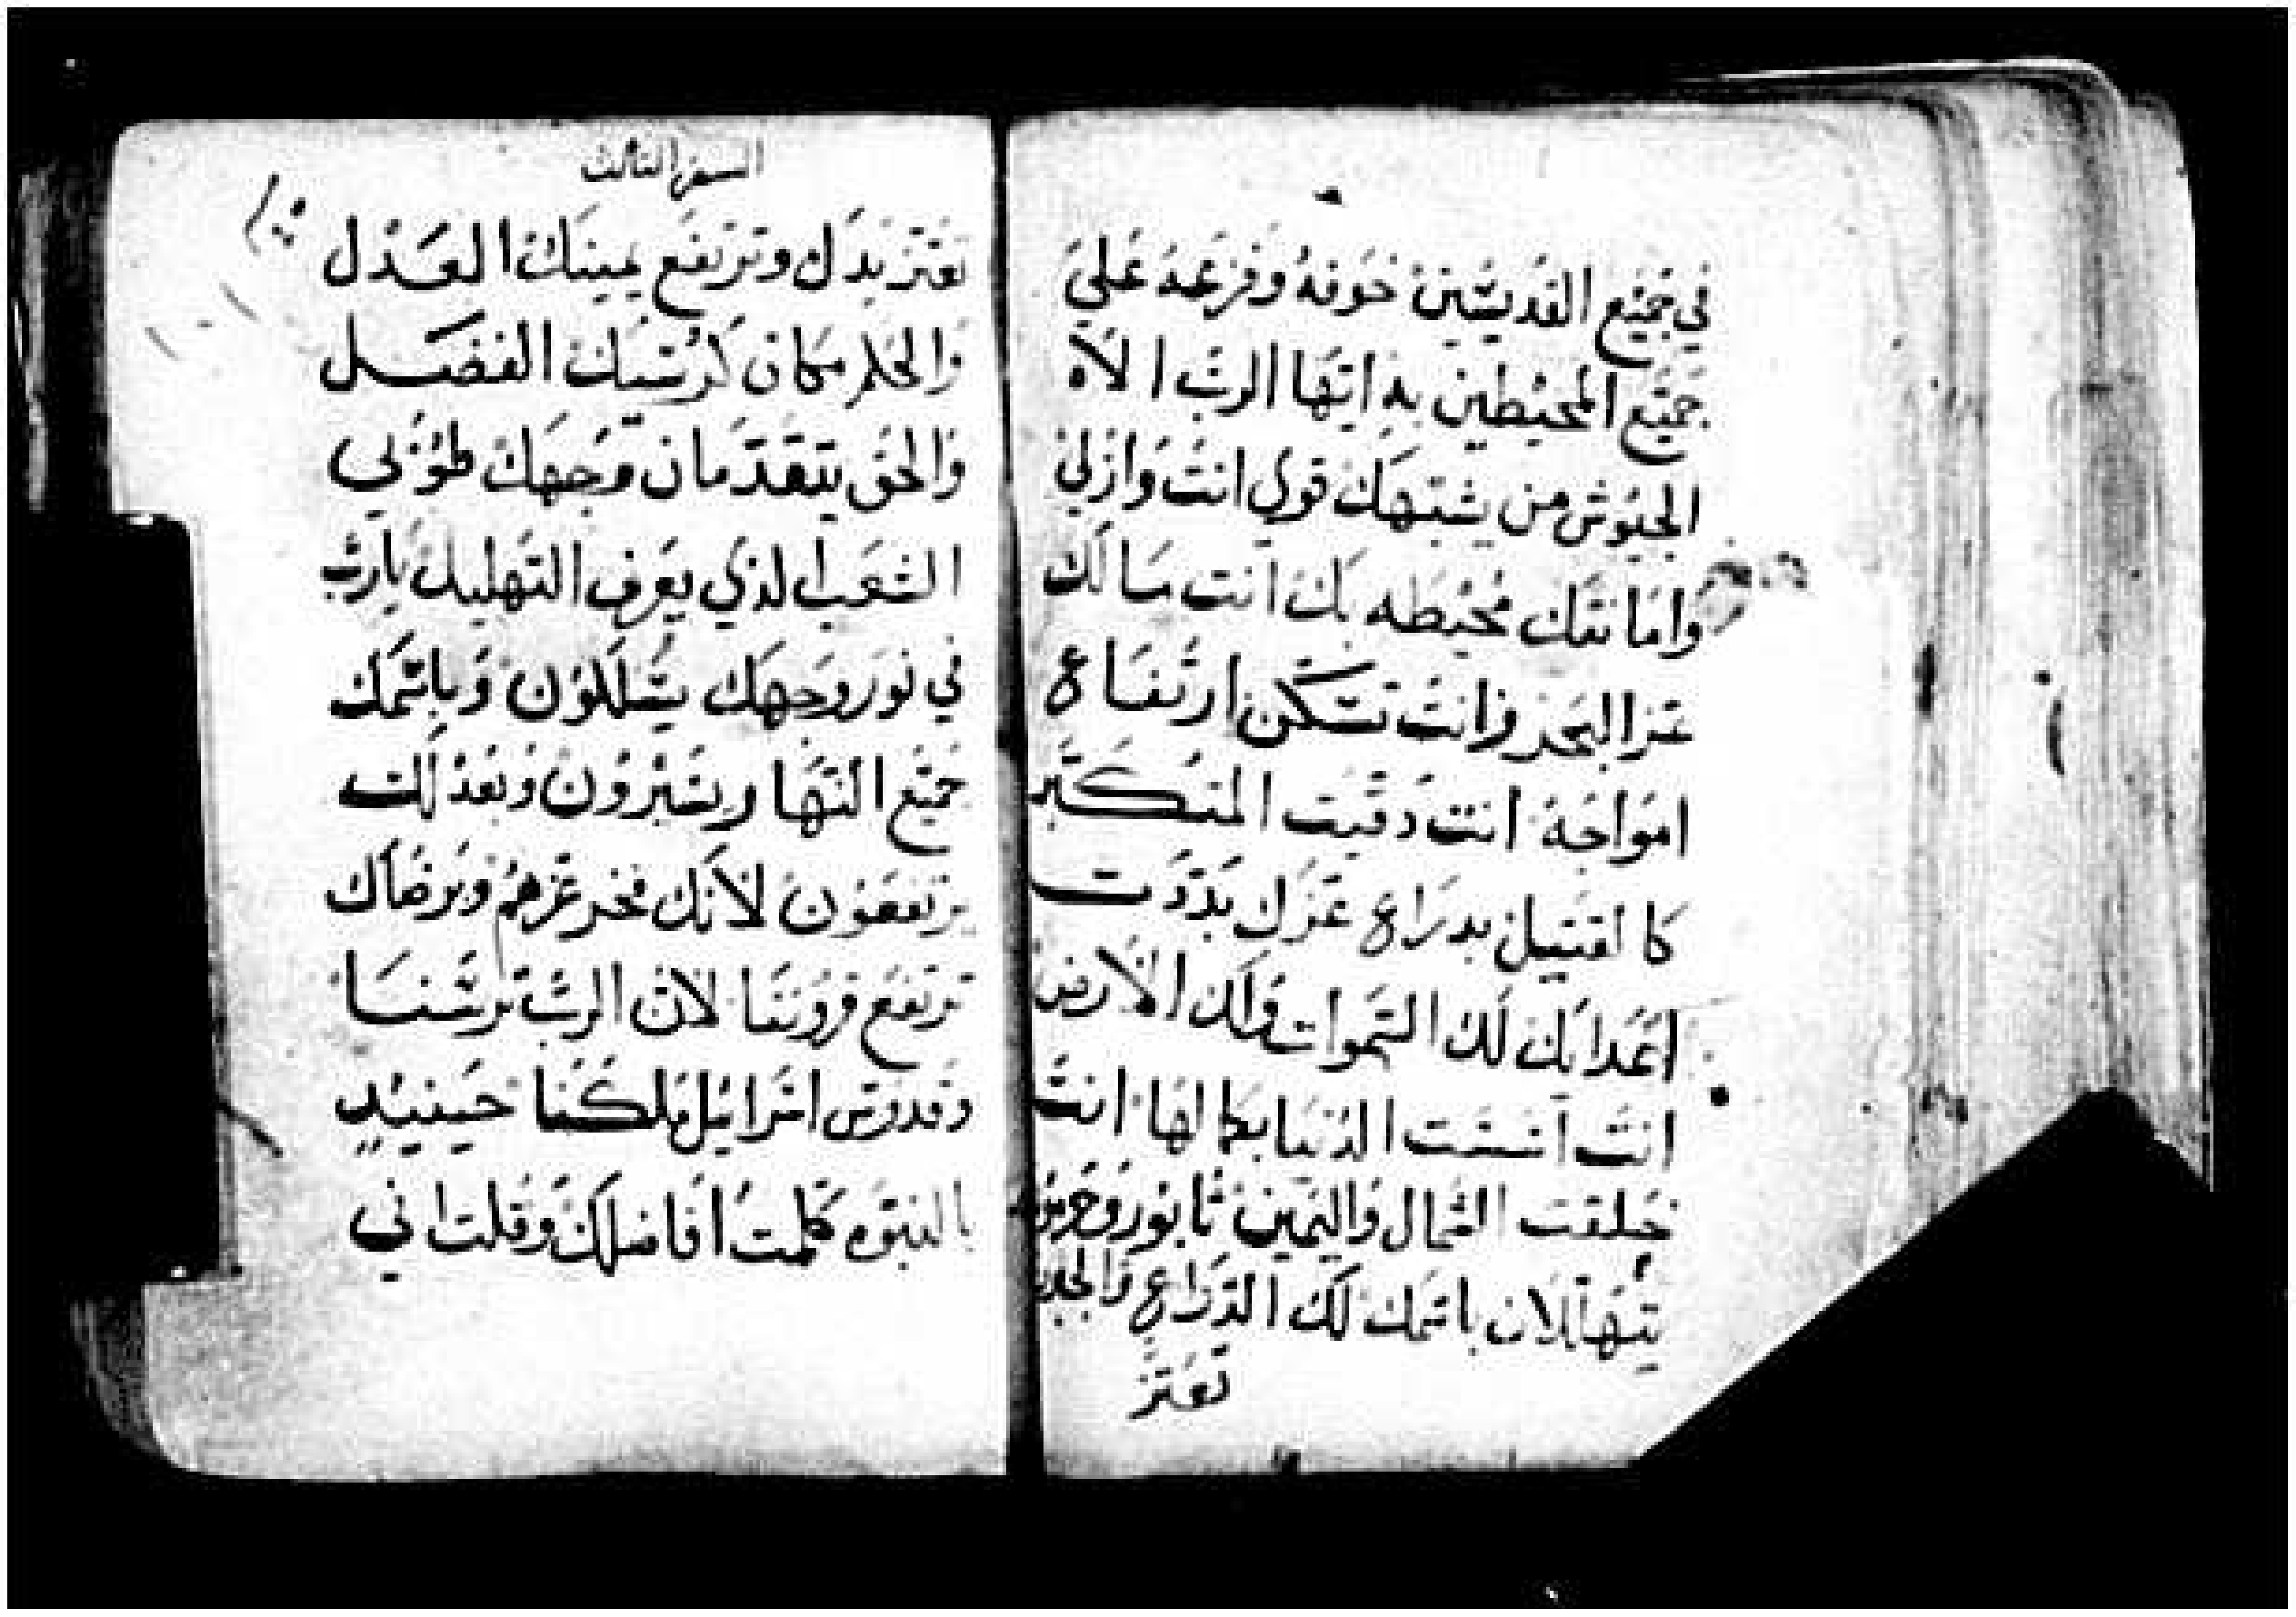 في جميع القديسين خوفه وفزعه علي
جميع المحيطين به ايها الرب الاه
الجيوش من يشبهك قوي انت وازلي
وامانتك محيطه بك انت مسالك
عز البحر وانت تسكن ارتفاع
امواجه انت دقيت المتكبر
كا لقتيل بدراع عزك بددت
اعداىك لك السموات ولك الارض
انت اسست الدنيا بكمالها انت
خلقت الشمال واليمين تابور وحرمون
يتهللان باسمك لك الدراع والجلد
تعتز
السفر الثالث
تعتز يدك وترتفع يمينك العدل
والحكم مكان كرسيك الفضل
والحق يتقدمان وجهك طوبي
الشعب الذي يعرف التهليل يارب
في نور وجهك يسلكون وباسمك
جميع النهار يسرون وبعدلك
يرتفعون لانك فخر عزهم وبرضاك
ترتفع قروننا لان الرب ترسنا
وقدوس اسراييل ملكنا حينيد
بالنبوه كلمت افاضلك وقلت اني